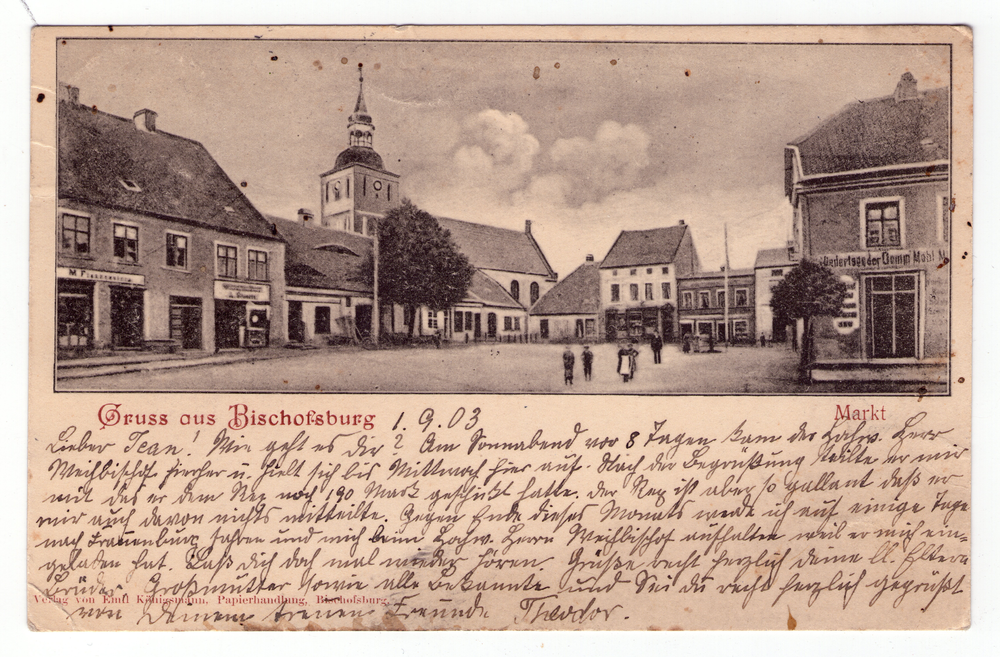 Niederlage der Domp Möbl
Gruss aus Bischofsburg
Markt
1.9.03
Lieber Jean! Wie geht es dir? Am Sonnabend vor 8 Tagen kam der Hochw. Herr
Weihbischof hierher u. hielt sich bis Mittwoch hier auf. Nach der Begrüßung teilte er mir
mit das er dem noch 190 Mark geschickt hatte. der ist aber so gallant daß er
mir auch davon nichts mitteilte. Gegen Ende dieses Monats werde ich auf einige Tage
nach Frauenburg fahren und mich beim Hochw. Herrn Weihbischof aufhalten weil er mich ein-
geladen hat. Laß dich doch mal wieder hören. Grüße recht herzlich deine ll. Eltern
Brüder Großmutter sowie alle Bekannte und Sei du recht herzlich gegrüßt
von Deinem treuen Freunde Theodor.
Verlag von Emil Königsmann, Papierhandlung, Bischofsburg.